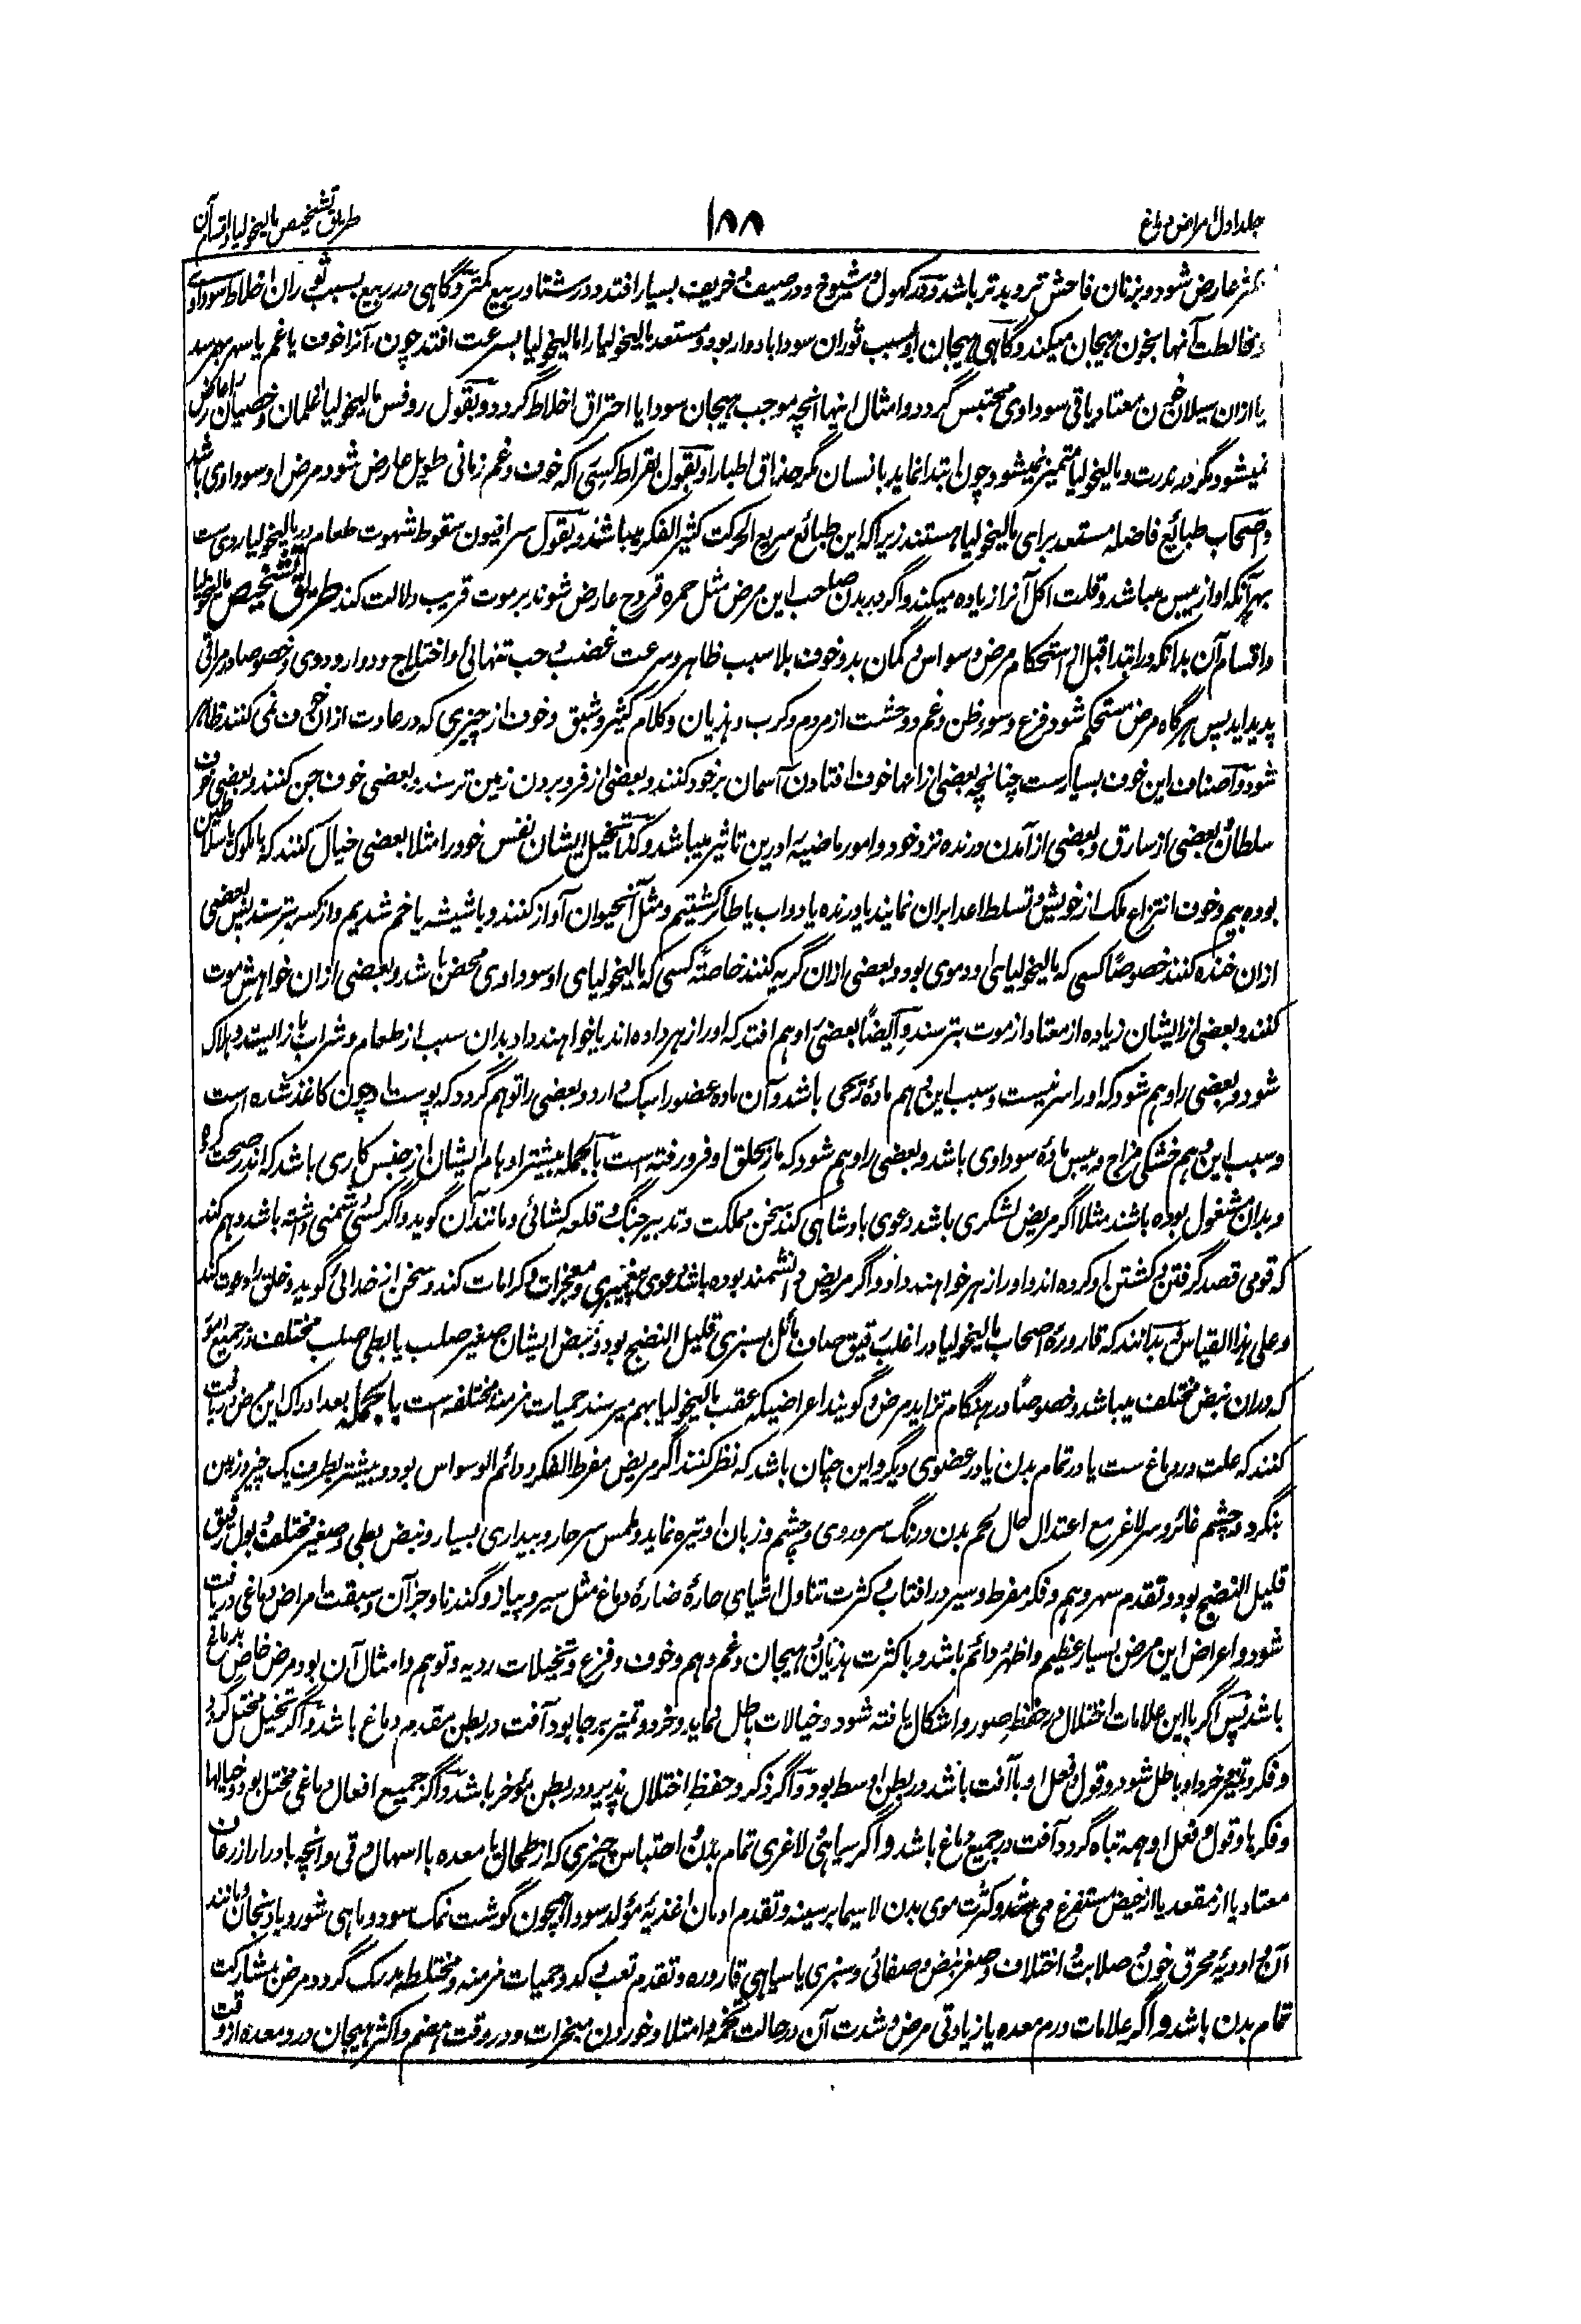 جلد اول امراض دماغ
۱۸۸
طریق تشخیص مالیخولیا و اقسام آن
کمتر عارض شود و بزنان فاحش تر و بدتر باشد و در کهول و شیوخ و در صیف و خریف بسیار افتد و در شتا و ربیع کمتر و گاهی در ربیع بسبب ثوران اخلاط سوداوی
و مخالطت آنها بخون هیجان میکند و گاهی هیجان او بسبب ثوران سودا بادوار بود و مستعد مالیخولیا را مالیخولیا بسرعت افتد چون آنرا خوف یا غم یا سهر برسد
یا ازان سیلان خون معتاد یا قی سوداوی محتبس گردد و امثال اینها انچه موجب هیجان سودا یا احتراق اخلاط گردد و بقول روفس مالیخولیا غلمان و خصیان را عارض
نمیشود مگر در ندرت و مالیخولیا متمیز نمیشود چون ابتدا نماید بانسان مگر حذاق اطبا را و بقول بقراط کسی را که خوف و غم زمانی طویل عارض شود مرض او سوداوی باشد
و اصحاب طبائع فاضله مستعد برای مالیخولیا هستند زیرا که این طبائع سریع الحرکت کثیر الفکر میباشند و بقول سرافیون سقوط شهوت طعام در مالیخولیا ردی ست
بهر آنکه او از یبس میباشد و قلت اکل آنرا زیاده میکند و اگر در بدن صاحب این مرض مثل حمره قروح عارض شوند بر موت قریب دلالت کند طریق تشخیص مالیخولیا
و اقسام آن بدانکه در ابتدا قبل از استحکام مرض وسواس و گمان بد و خوف بلا سبب ظاهر و سرعت غضب و حب تنهائی و اختلاج و دوار و دوی و خصوصا در مراقی
پدید آید پس هرگاه مرض مستحکم شود فزع و سوء ظن و غم و وحشت از مردم و کرب و هذیان و کلام کثیر و شبق و خوف از چیزی که در عادت ازان خوف نمی کنند ظاهر
شود و اصناف این خوف بسیارست چنانچه بعضی ازانها خوف افتادن آسمان بر خود کنند و بعضی از فرو بردن زمین ترسند و بعضی خوف جن کنند و بعضی خوف
سلطان و بعضی از سارق و بعضی از آمدن درنده نزد خود و امور ماضیه را درین تاثیر میباشد و کذا تخیل ایشان نفس خود را مثلا بعضی خیال کنند که ما ملوک یا سلاطین
بوده ایم و خوف انتزاع ملک از خویش و تسلط اعدا بران نمایند یا درنده یا دواب یا طائر گشتیم و مثل آنحیوان آواز کنند و یا شیشه یا خم شدیم و از کسر بترسند پس بعضی
ازان خنده کنند خصوصاً کسی که مالیخولیای او دموی بود و بعضی ازان گریه کنند خاصتہ کسی که مالیخولیای او سوداوی محض باشد و بعضی ازان خواهش موت
کنند و بعضی از ایشان زیاده از معتاد از موت بترسند و ایضاً بعضی را وهم افتد که او را زهر داده اند یا خواهند داد بدان سبب از طعام و شراب باز ایستد و هلاک
شود و بعضی را وهم شود که او را سر نیست و سبب این وهم مادهٔ ریحی باشد و آن ماده عضو را سبک دارد و بعضی را توهم گردد که پوست او چون کاغذ شده است
و سبب این وهم خشکی مزاج و یبس مادهٔ سوداوی باشد و بعضی را وهم شود که مار بحلق او فرو رفته است بالجمله بیشتر اوهام ایشان از جنس کاری باشد که اندر صحت کرده
و بدان مشغول بوده باشند مثلا اگر مریض لشکری باشد دعوی بادشاهی کند و سخن مملکت و تدبیر جنگ و قلعه کشائی و مانند آن گوید و اگر کسی دشمنی داشته باشد وهم کند
که قومی قصد گرفتن و کشتن او کرده اند و او را زهر خواهند داد و اگر مریض دانشمند بوده باشد دعوی پیغمبری و معجزات و کرامات کند و سخن از خدائی گوید و خلق را دعوت کند
و علی هذا القیاس و بدانند که قارورهٔ اصحاب مالیخولیا در اغلب رقیق صاف مائل بسبزی قلیل النضج بود و نبض ایشان صغیر صلب یا بطی صلب مختلف در جمیع امور
که دران نبض مختلف میباشد و خصوصاً در هنگام تزاید مرض و گویند اعراضیکه عقب مالیخولیا بهم میرسند حمیات مزمنه مختلفه است بالجمله بعد ادراک این مرض دریافت
کنند که علت در دماغ ست یا در تمام بدن یا در عضوی دیگر و این چنان باشد که نظر کنند اگر مریض مفرط الفکر و دائم الوسواس بود و بیشتر بطرف یک چیز و زمین
بنگرد و چشم غائر و سر لاغر مع اعتدال حال لحم بدن و رنگ سر و روی و چشم و زبان او تیره نماید و لمس سر حار و بیداری بسیار و نبض بطی و صغیر مختلف و بول رقیق
قلیل النضج بود و تقدم سهر و هم و فکر مفرط و سیر در آفتاب و کثرت تناول اشیای حارهٔ ضارهٔ دماغ مثل سیر و پیاز و گندنا و جز آن و سبقت امراض دماغی دریافت
شود و اعراض این مرض بسیار عظیم و اظهر و دائم باشد و با کثرت هذیان و هیجان و غم و هم و خوف و فزع و تخیلات ردیه و توهم و امثال آن بود مرض خاص بدماغ
باشد پس اگر با این علامات اختلال در حفظ صور و اشکال یافته شود و خیالات باطل نماید و خرد و تمیز بر جا بود آفت در بطن مقدم دماغ باشد و اگر تخیل مختل گردد
و فکر و تمیز خرد او باطل شود و قول و فعل او با آفت باشد در بطن اوسط بود و اگر ذکر و حفظ اختلال پذیرد در بطن مؤخر باشد و اگر جمیع افعال دماغی مختل بود و خیالها
و فکرها و قول و فعل او همه تباه گردد آفت در جمیع دماغ باشد و اگر سیاهی و لاغری تمام بدن و احتباس چیزی که از طحال یا معده با اسهال و قی و انچه بادرار از رعاف
معتاد یا از مقعد یا از حیض مستفرغ می شد و کثرت موی بدن لاسیما بر سینه و تقدم ادمان اغذیهٔ مؤلد سودا همچون گوشت نمک سود و ماهی شور و بادنجان و مانند
آن و ادویهٔ محرق خون و صلابت و اختلاف و صغر نبض و صفائی و سبزی یا سیاهی قاروره و تقدم تعب و کد و حمیات مزمنه و مختلطه مدرک گردد مرض بمشارکت
تمام بدن باشد و اگر علامات ورم معده یا زیادتی مرض و شدت آن در حالت تخمه و امتلا و خوردن مبخرات و در وقت هضم و اکثر هیجان درد معده در وقت